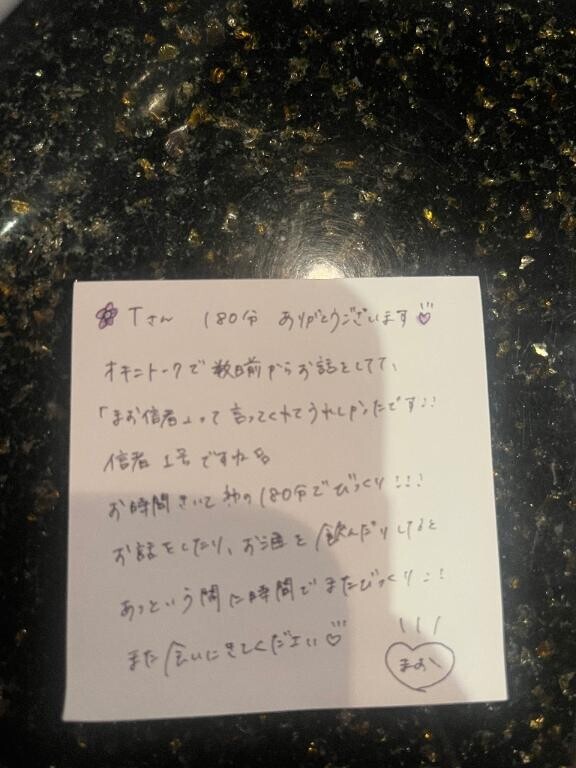 Tさん 180分 ありがとうございます♡
オキニトークで数日前からお話をしてて、
「まお信者」って言ってくれてうれしかったです!!
信者1号ですね
お時間きいて初の180分でびっくり!!!
お話をしたり、お酒を飲んだりしてると
あっという間に時間でまたびっくり!!
また会いにきてください♡
まお